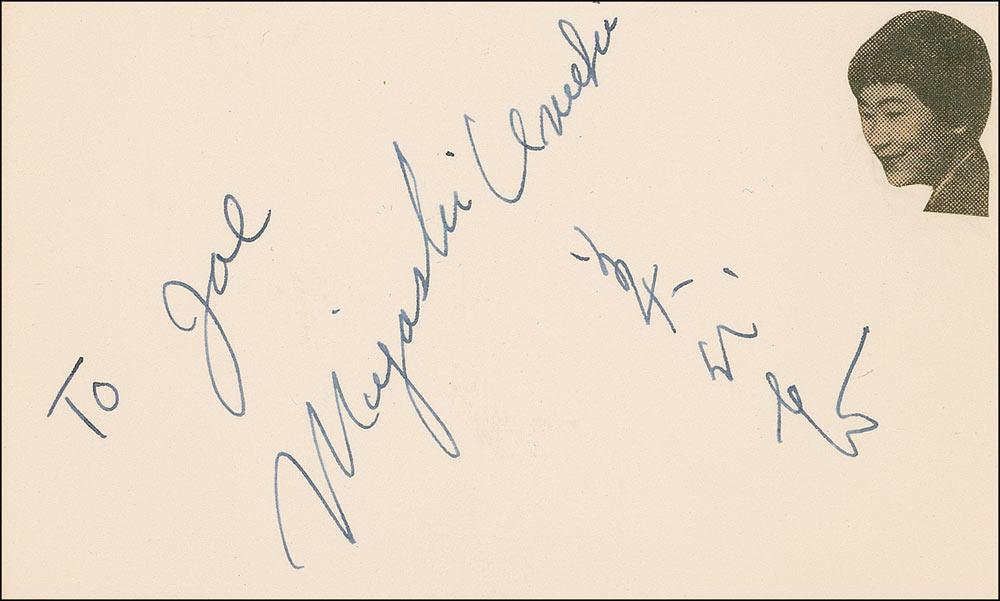 To Joe
Miyoshi Umeki